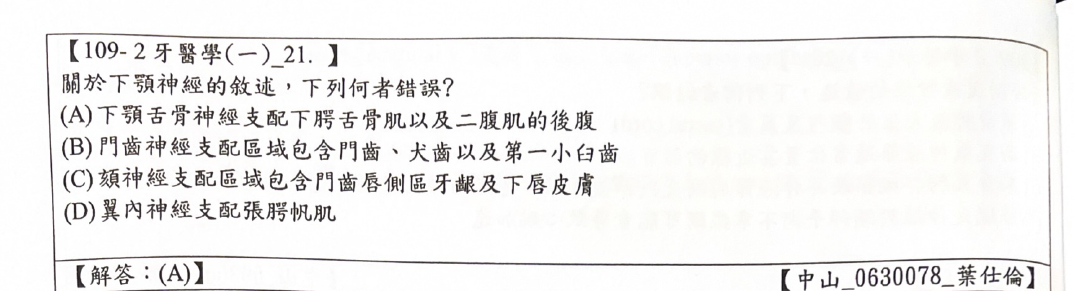 【109-2 牙醫學(一)_21. 】
關於下顎神經的敘述，下列何者錯誤?
(A)下顎舌骨神經支配下腭舌骨肌以及二腹肌的後腹
(B)門齒神經支配區域包含門齒、犬齒以及第一小臼齒
(C)頦神經支配區域包含門齒唇側區牙齦及下唇皮膚
(D)翼內神經支配張腭帆肌
【解答：(A)】 【中山_0630078_葉仕倫】